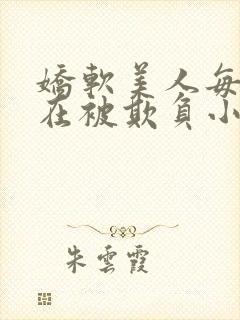 嬌軟美人每
在被欺負小
朱雲霞